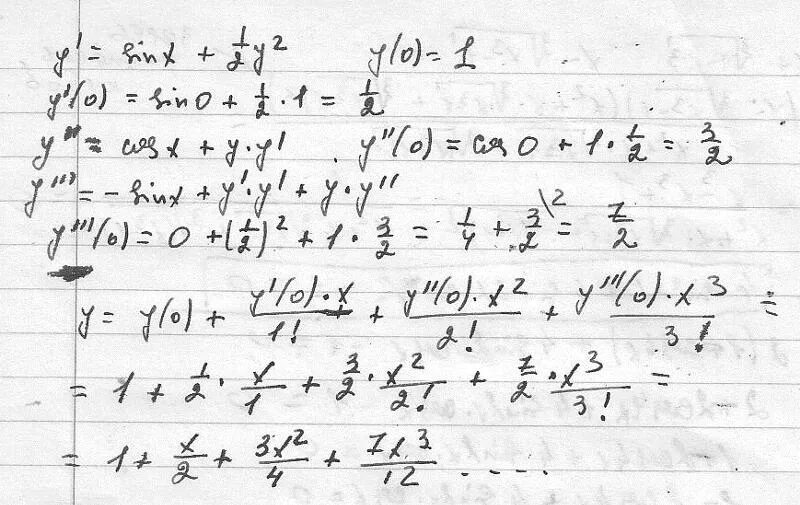 y' = sinx + 1/2 y² y(0) = 1
y'(0) = sin0 + 1/2 · 1 = 1/2
y'' = cosx + y·y' . y''(0) = cos 0 + 1· 1/2 = 3/2
y''' = -sinx + y'·y' + y·y''
y'''(0) = 0 + (1/2)² + 1· 3/2 = 1/4 + 3/2 \² = 7/2
y = y(0) + y'(0)·x/1! + y''(0)·x²/2! + y'''(0)·x³/3! =
= 1 + 1/2 · x/1 + 3/2 · x²/2! + 7/2 · x³/3! =
= 1 + x/2 + 3x²/4 + 7x³/12 .....